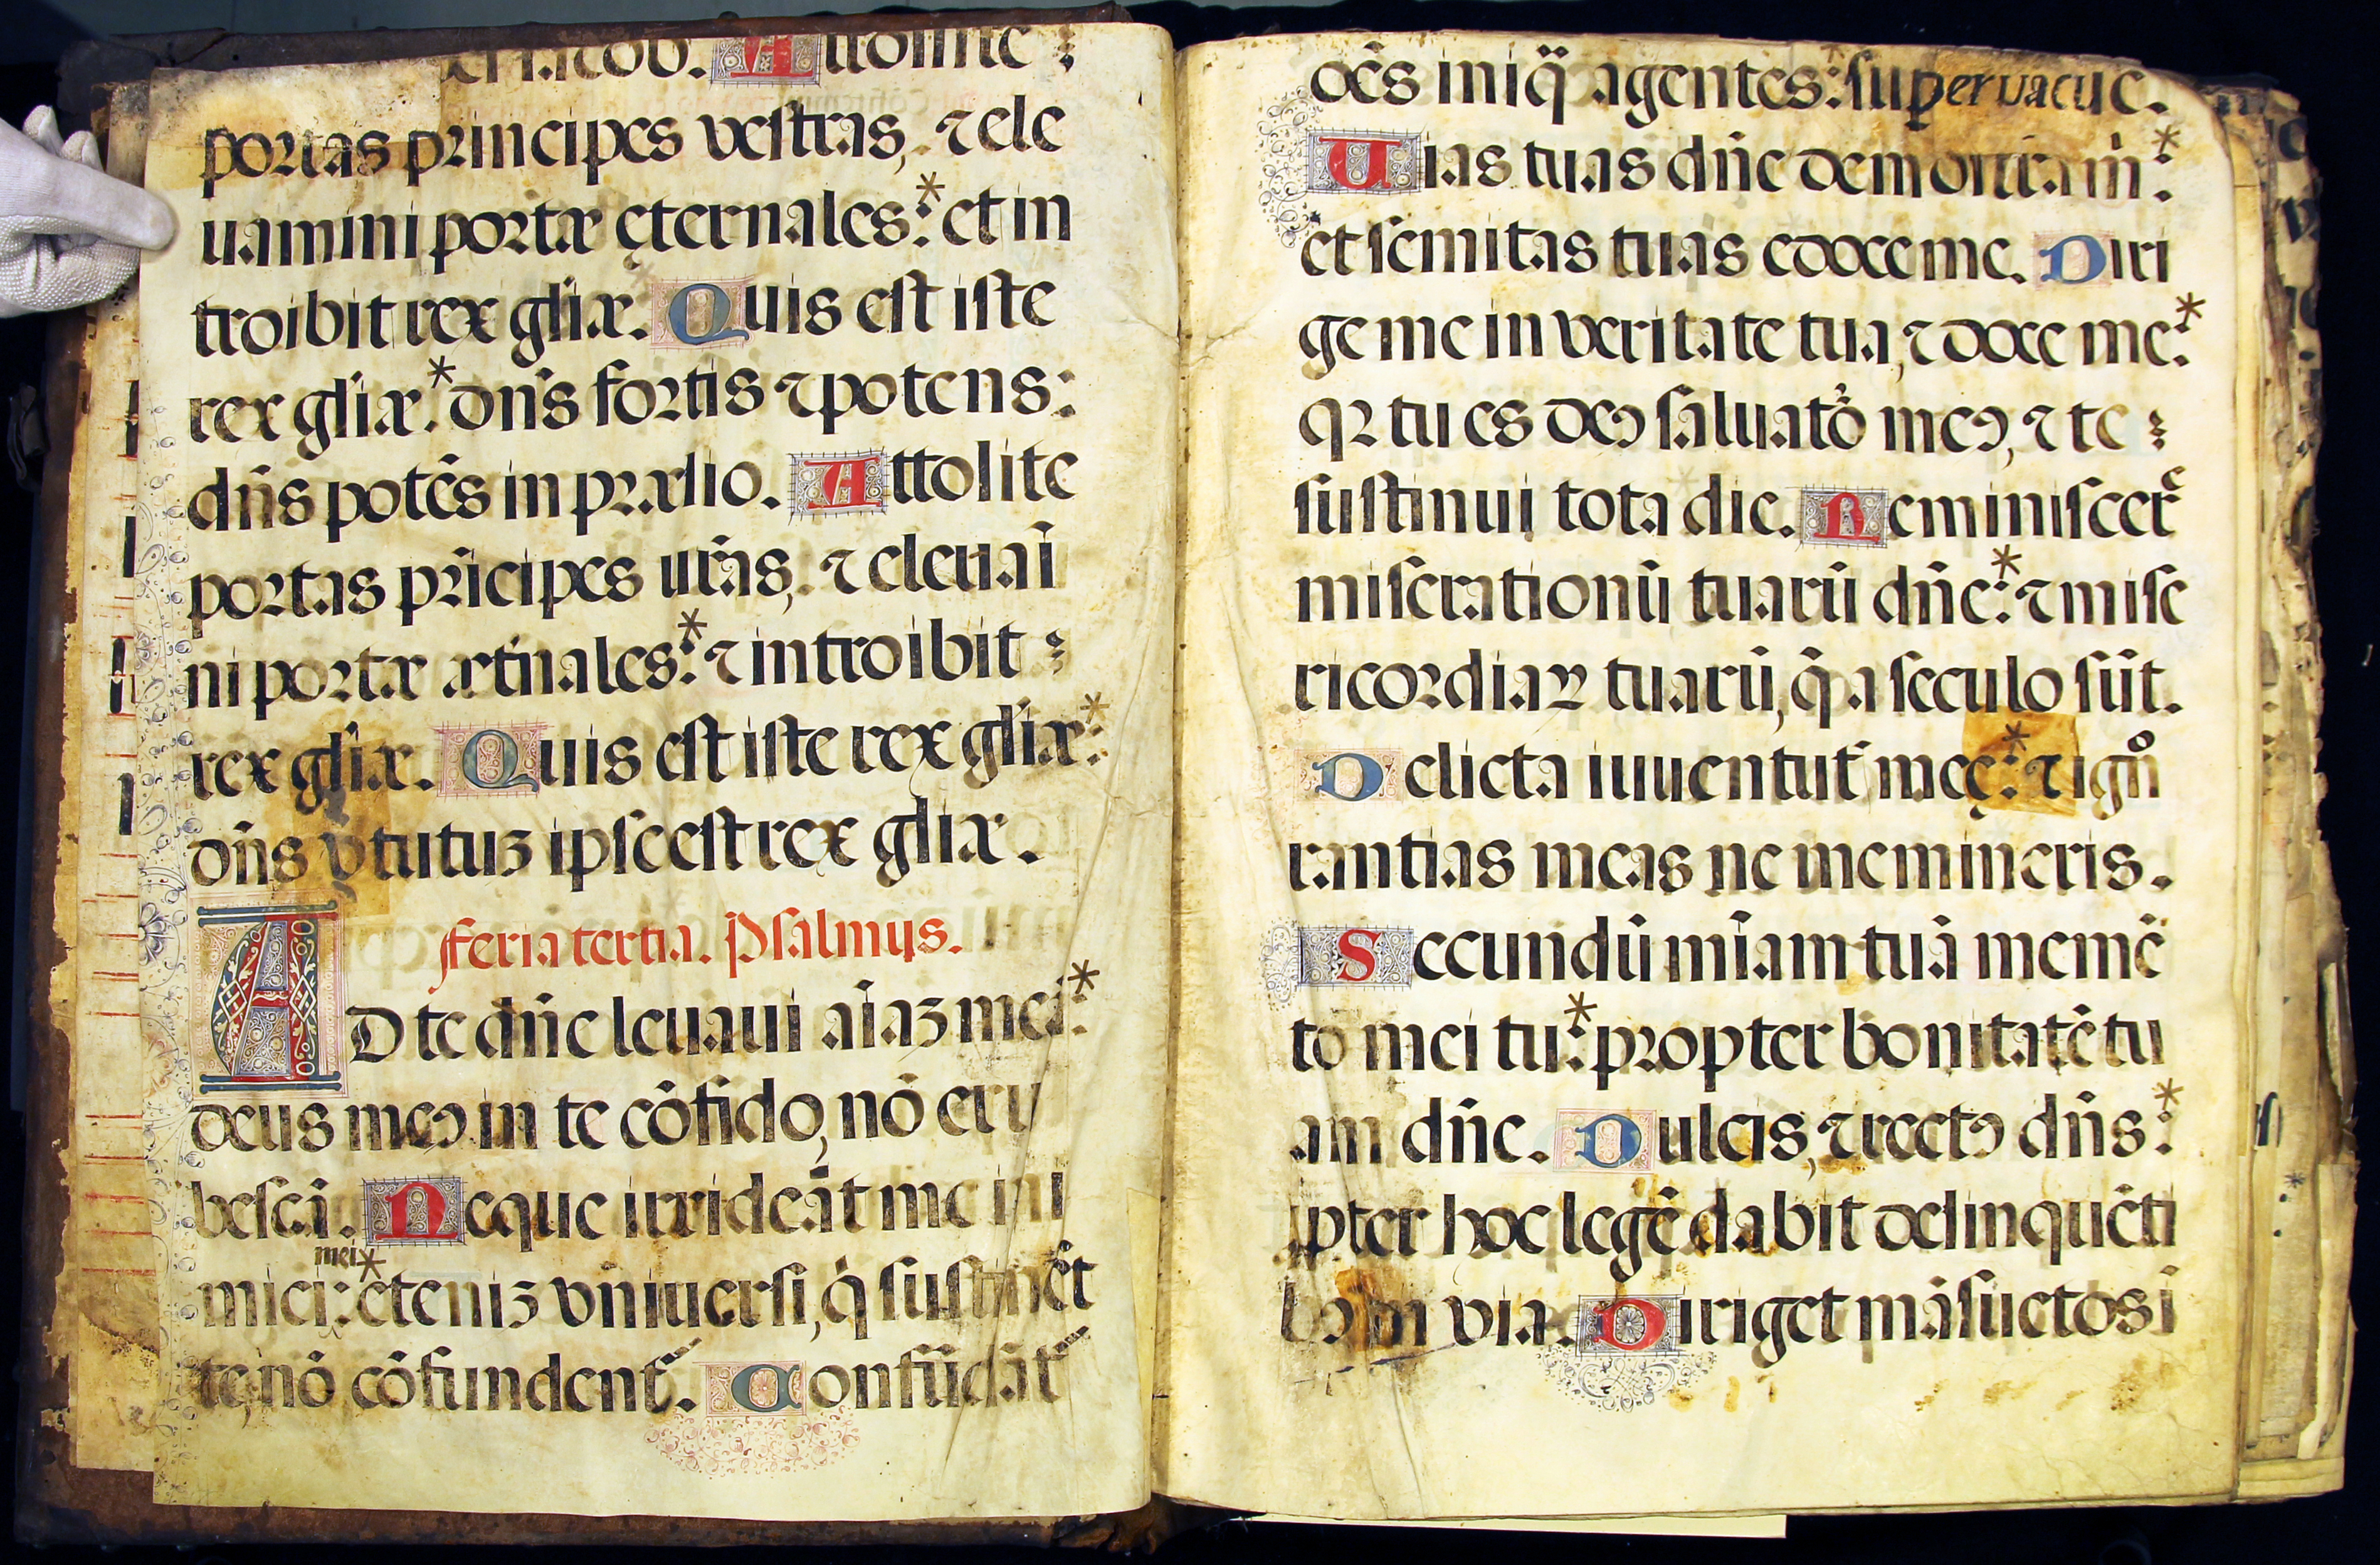 Iacob. Attollite
portas principes vestras, ⁊ ele
uamini portæ ęternales:* et in
troibit rex glīæ. Quis est iste
rex glīæ:* dn̄s fortis ⁊ potens:
dn̄s potēs in prælio. Attolite
portas prīcipes ur̄as, ⁊ eleuaī
ni portæ æt̄nales:* ⁊ introibit
rex glīæ. Quis est iste rex glīæ:*
dn̄s v̄tutuꝫ ipse est rex glīæ.
Feria tertia. Psalmus.
AD te dn̄e leuaui aīaꝫ meā:*
deus meꝰ in te cōfido, nō eru
bescā. Neque irrideāt me ini
mei
mici:* eteniꝫ vniuersi, q̇ sustinēt
te, nō cōfundent᷑. Confūdāt᷑
oēs iniq̄ agentes: superuacue.
Uias tuas dn̄e demonstra m̄:*
et semitas tuas edoce me. Diri
ge me in veritate tua, ⁊ doce me:*
qꝛ tu es deꝰ saluatõ meꝰ, ⁊ te
sustinui tota die. Reminiscer᷑
miserationū tuarū dn̄e:* ⁊ mise
ricordiaꝝ tuarū, q̄ a seculo sūt.
Delicta iuuentut᷑ meę:* ⁊ ignͦ
rantias meas ne memineris.
Secundū mīam tuā memē
to mei tu:* propter bonitatē tu
am dn̄e. Dulcis, ⁊ rectꝰ dn̄s:*
ꝓpter hoc legē dabit delinquēti
bꝰ in via. Diriget māsuetos ī